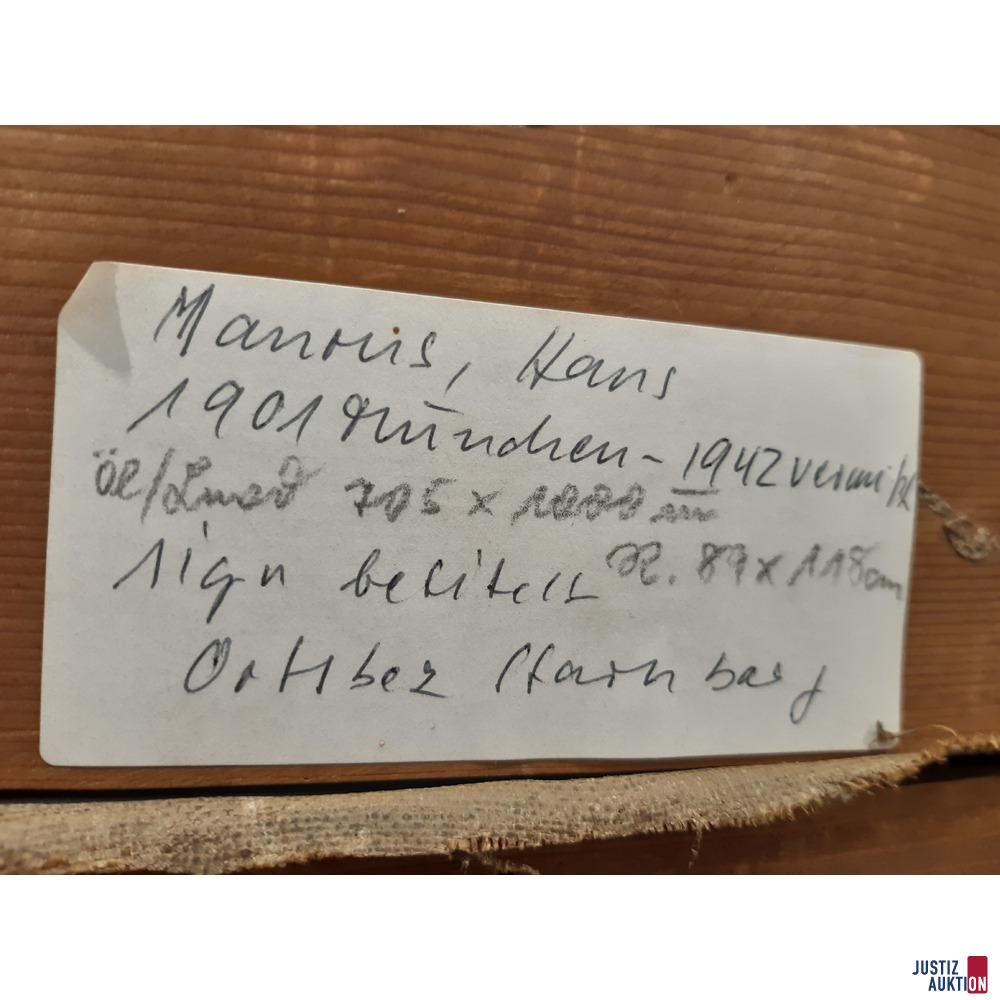 Manouis, Hans
1901 München - 1942 vermißt
Öl/Lnwd 705 x 1000 mm
sign betitelt R. 89 x 118cm
Ortsbez Starnberg
JUSTIZ
AUKTION